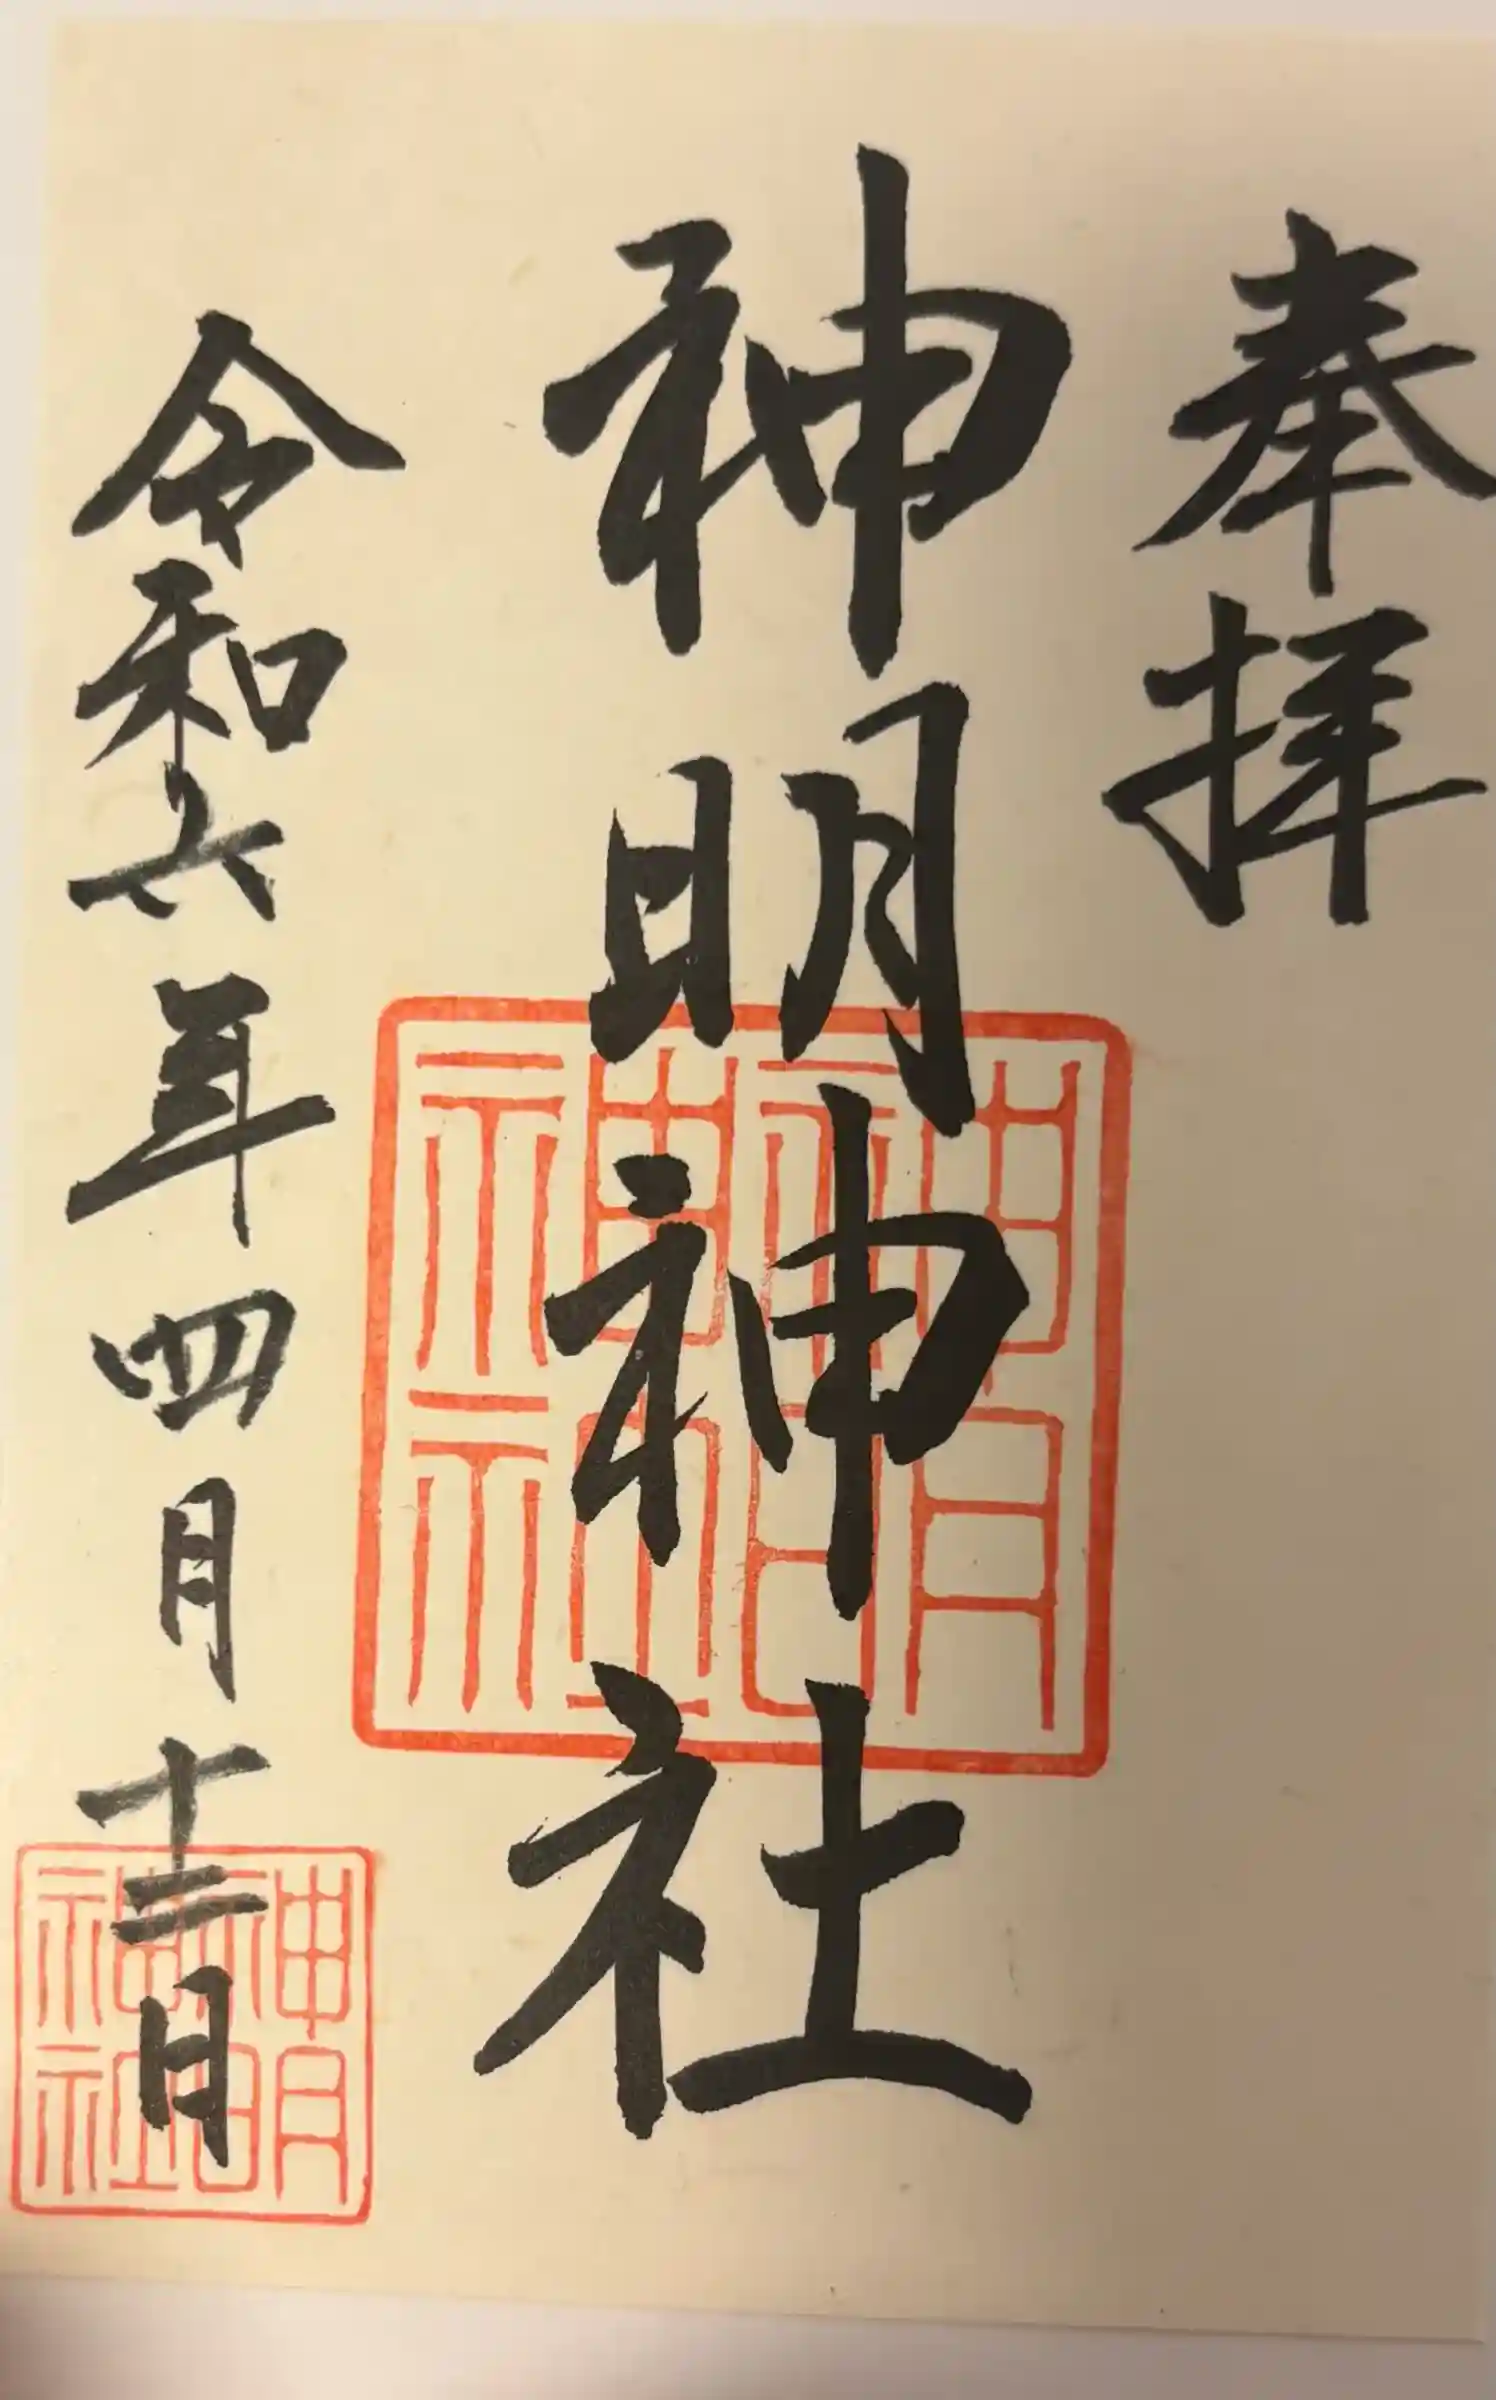 奉拝
神明神社
令和六年四月十二日
神明
神社
神明
神社